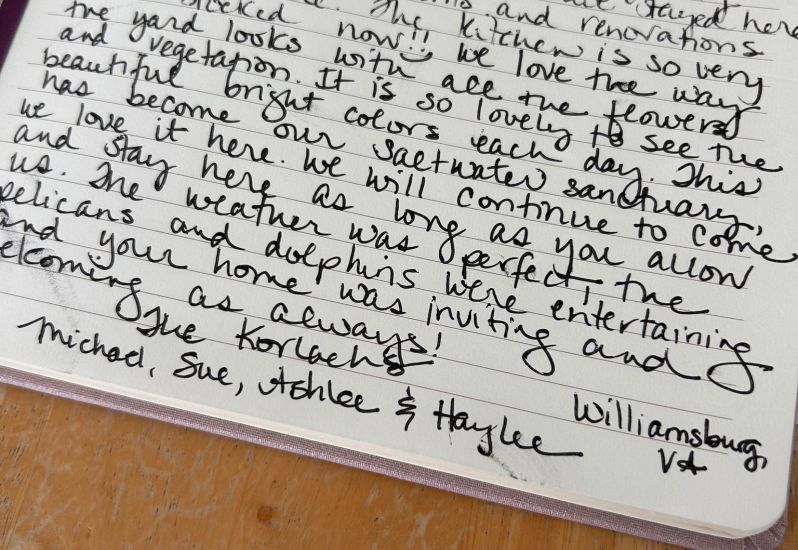 stayed here
and renovations
The kitchen is so very
now!! We love the way
the yard looks with all the flowers
and vegetation. It is so lovely to see the
beautiful bright colors each day. This
has become our saltwater sanctuary,
we love it here. We will continue to come
and stay here as long as you allow
us. The weather was perfect, the
pelicans and dolphins were entertaining
and your home was inviting and
elcoming as always!
The Korlachs
Michael, Sue, Ashlee & Haylee
Williamsburg,
VA